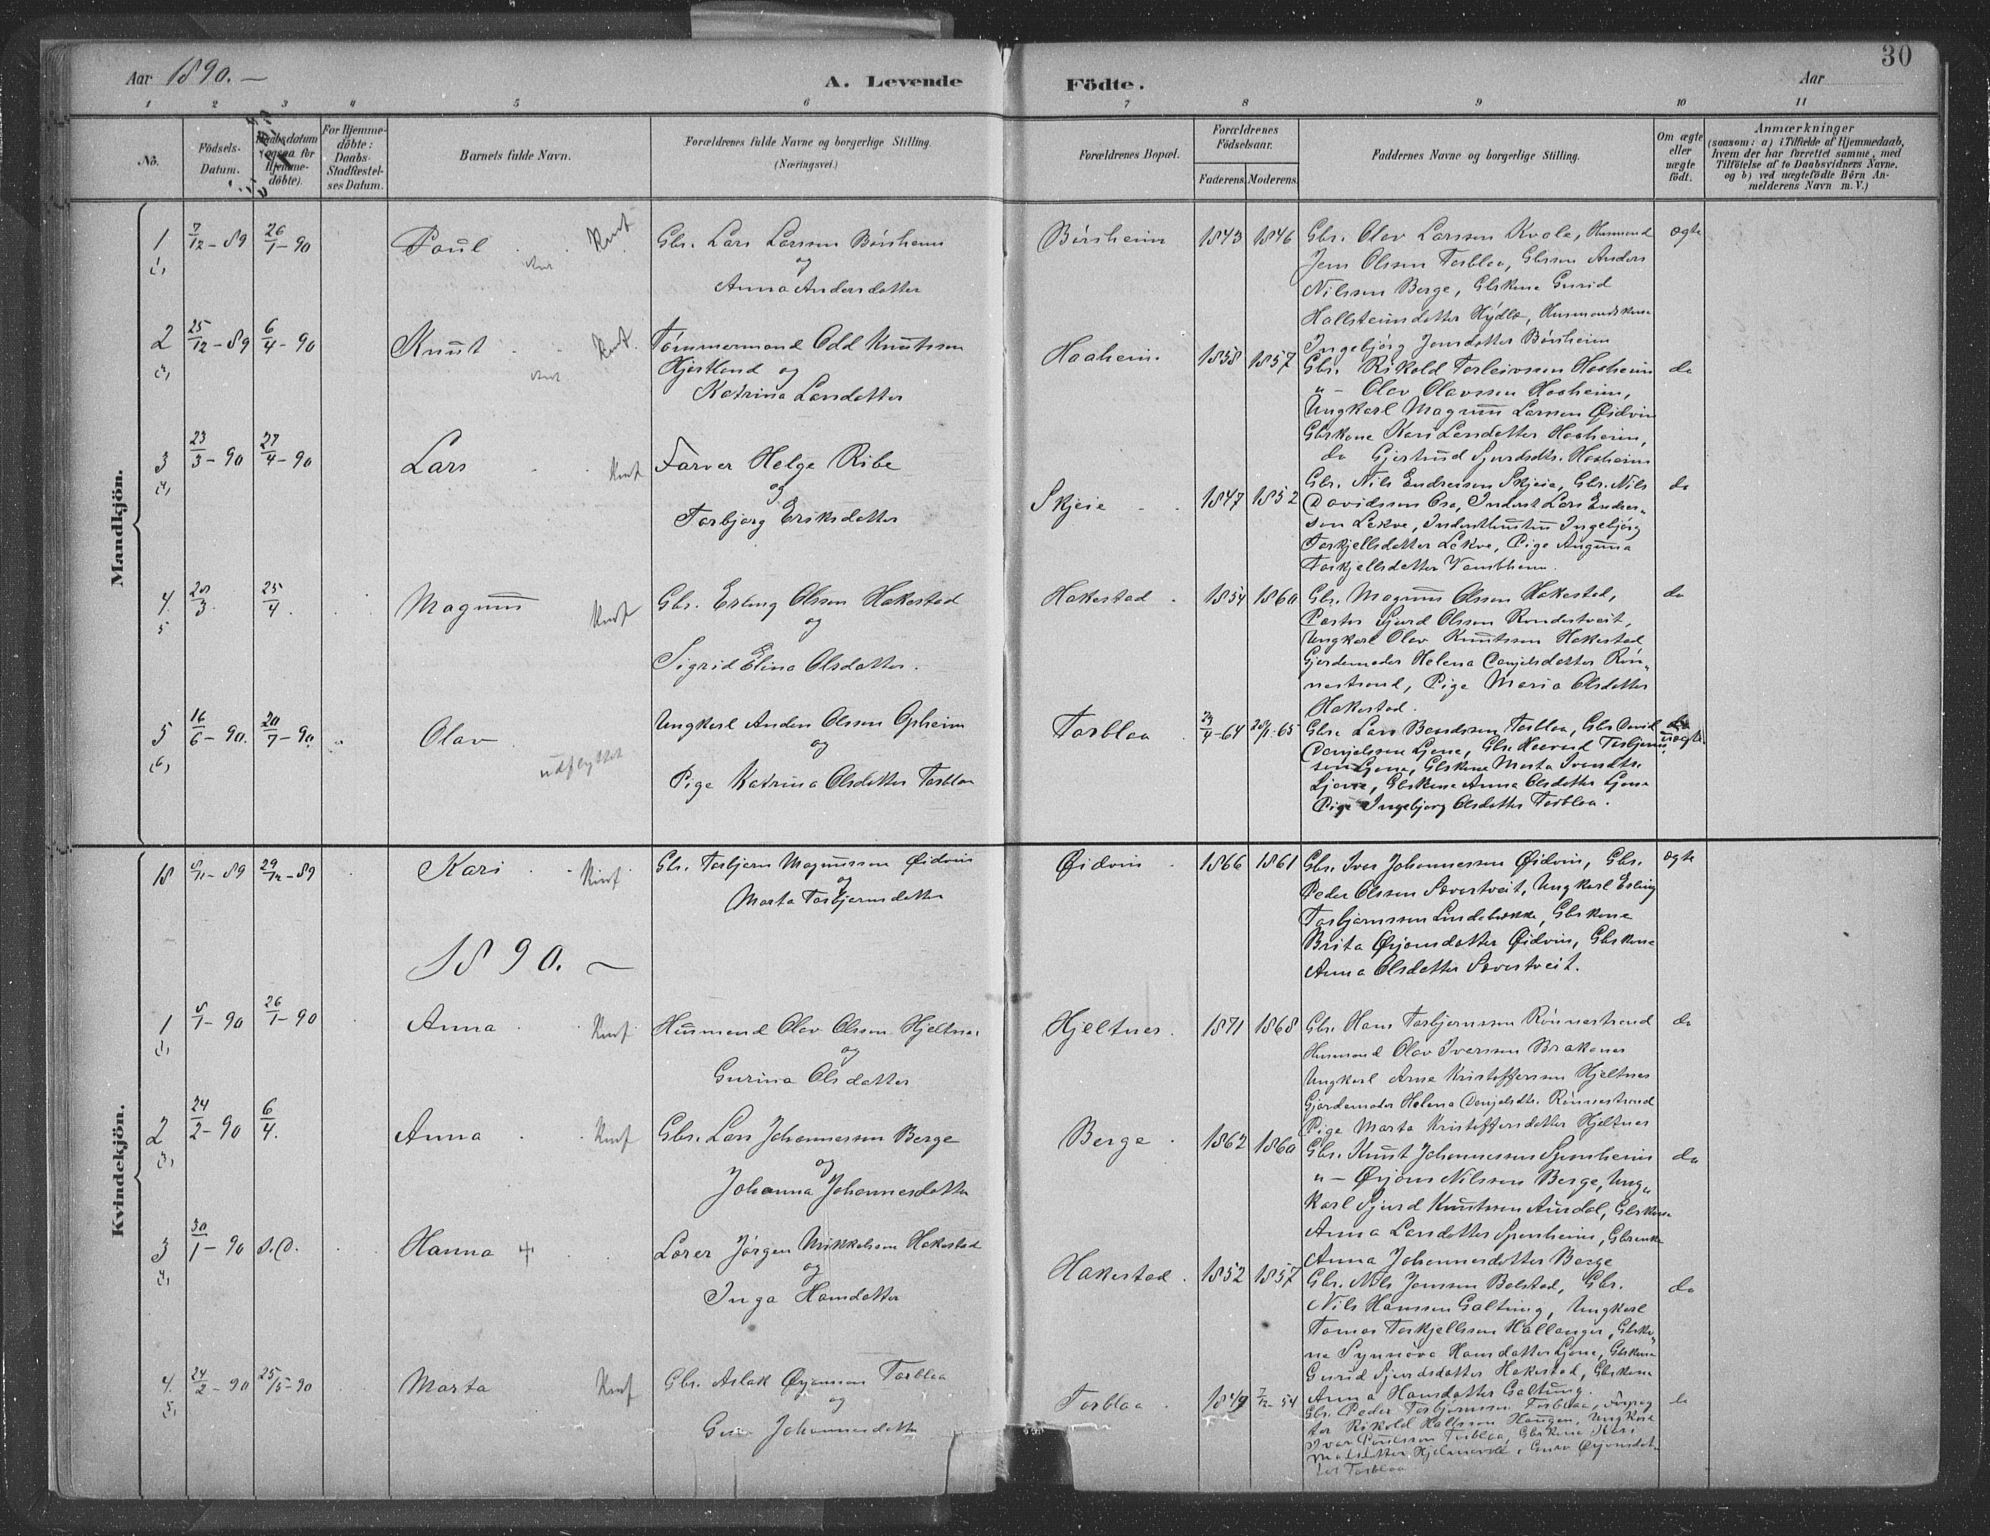 Aar 1890. —
A. Levende
Födte.
Aar
30
1 2 3 4 5 6 7 8 9 10 11
No.
Födsels-
Datum.
Daabsdatum
(ogsaa for
Hjemme-
døbte).
For Hjemme-
döbte:
Daabs-
Stadfæstel-
ses Datum.
Barnets fulde Navn.
Forældrenes fulde Navne og borgerlige Stilling.
(Næringsvei.)
Forældrenes Bopæl.
Forældrenes
Födselsaar.
Faderens. Moderens.
Faddernes Navne og borgerlige Stilling.
Om ægte
eller
uægte
födt.
Anmærkninger
(saasom: a) i Tilfælde af Hjemmedaab,
hvem der har forrettet samme, med
Tilföielse af to Daabsvidners Navne.
og b) ved uægtefödte Börn An-
melderens Navn m. V.)
Mandkjön.
1 7/12 - 89 26/1 - 90 Paul Gbr. Lars Larssen Børsheim
og
Anna Andersdatter
Børsheim 1843 1846 Gbr. Olav Larssen Kvale, Husmand
Jens Olssen Torblaa, Gbrssøn Anders
Nilssen Berge, Gbrkone Gurid
Hallsteinsdatter Hydle, Husmandskone
Ingebjørg Jonsdatter Børsheim
ægte
2 25/12 - 89 6/4 - 90 Knut Tømmermand Odd Knutssen
Hjortland og
Katrina Larsdatter
Haaheim 1858 1857 Gbr. Rikold Torleivssen Haaheim
" — Olav Olavssen Haaheim,
Ungkarl Magnus Larssen Øidvin
Gbrkone Kari Larsdatter Haaheim,
do Gjertrud Sjurdsdtr. Haaheim
do
3 23/3 - 90 27/4 - 90 Lars Farver Helge Ribe
og
Torbjørg Eriksdatter
Skjeie 1847 1852 Gbr. Nils Endressen Skjeie, Gbr. Nils
Davidssen Osa, Inderst Lars Endres-
sen Lekve, Ingebjørg
Torkjellsdatter Lekve, Pige Anguna
Torkjellsdatter Vambheim.
do
4. 28/3. 25/4. Magnus Gbr. Erling Olssen Hakestad
og
Sigrid Elina Olsdatter.
Hakestad 1854 1860 Gbr. Magnus Olssen Hakestad,
Sjurd Olssen Rondestveit,
Ungkarl Olav Knutssen Hakestad
Gjordemoder Helena Danjelsdatter Røn-
nestrand, Pige Maria Olsdatter
Hakestad.
do
5 16/6 - 90. 20/7 - 90. Olav udflyttet Ungkarl Anders Olssen Opheim
og
Pige Katrina Olsdatter Torblaa
Torblaa Gbr. Lars Torblaa, Gbr. David
Danjelssen Ljone, Gbr. Haavard Torbjørns-
sen Ljone, Gbrkone Marta
Ljone, Gbrkone Anna Olsdatter Ljone
Pige Ingebjørg Olsdatter Torblaa.
uægte
Kvindekjön.
18 8/11 - 89 29/12 - 89 Kari Gbr. Torbjørn Magnussen Øidvin
og
Marta Torbjørnsdatter
Øidvin 1866 1861 Gbr. Ivar Johannessen Øidvin, Gbr.
Peder Olssen Sævertveit, Ungkarl Erling
Torbjørnssen Lindebrække, Gbrkone
Brita Ørjansdatter Øidvin, Gbrkone
Anna Olsdatter Sævertveit.
ægte
1890. —
1 8/1 - 90 26/1 - 90 Anna Husmand Olav Olssen Hjeltnes
og
Gurina Olsdatter
Hjeltnes 1871 1868 Gbr. Hans Torbjørnssen Rönnestrand
Husmand Olav Iverssen Brakenes
Ungkarl Arne Kristoffersen Hjeltnes
Gjordemoder Helena Danjelsdtr. Rönnestrand
Pige Marta Kristoffersdatter Hjeltnes
do
2 24/2 - 90 6/4. Anna Gbr. Lars Johannessen Berge
og
Johanna Johannesdatter
Berge 1862 1860 Gbr. Knut Johannessen Spånheim
" — Ørjans Nilssen Berge, Ung-
karl Sjurd Knutssen Aurdal, Gbrkone
Anna Larsdatter Spånheim, Gbrenke
Anna Johannesdatter Berge
do
3 30/1 - 90 s.D. Hanna + Lærer Jørgen Mikkelssen Hakestad
og
Inga Hansdatter
Hakestad 1852 1857 Gbr. Nils Jonssen Bolstad, Gbr.
Nils Hanssen Galtung, Ungkarl
Tomas Torkjellssen Hallanger, Gbrko-
ne Synnøva Hansdatter Ljone, Gbrkone
Gurid Sjurdsdatter Hakestad, Gbrkone
Anna Hansdatter Galtung.
do
4. 24/2 - 90 25/5 - 90 Marta Gbr. Aslak Ørjanssen Torblaa
og
Guro Johannesdatter
Torblaa 1849 Gbr. Peder Torbjørnssen Torblaa,
Rikold Hallssen Haugen, Ungkarl
Ivar Torblaa, Gbrkone Kari
Guro Ørjansdat-
ter Torblaa